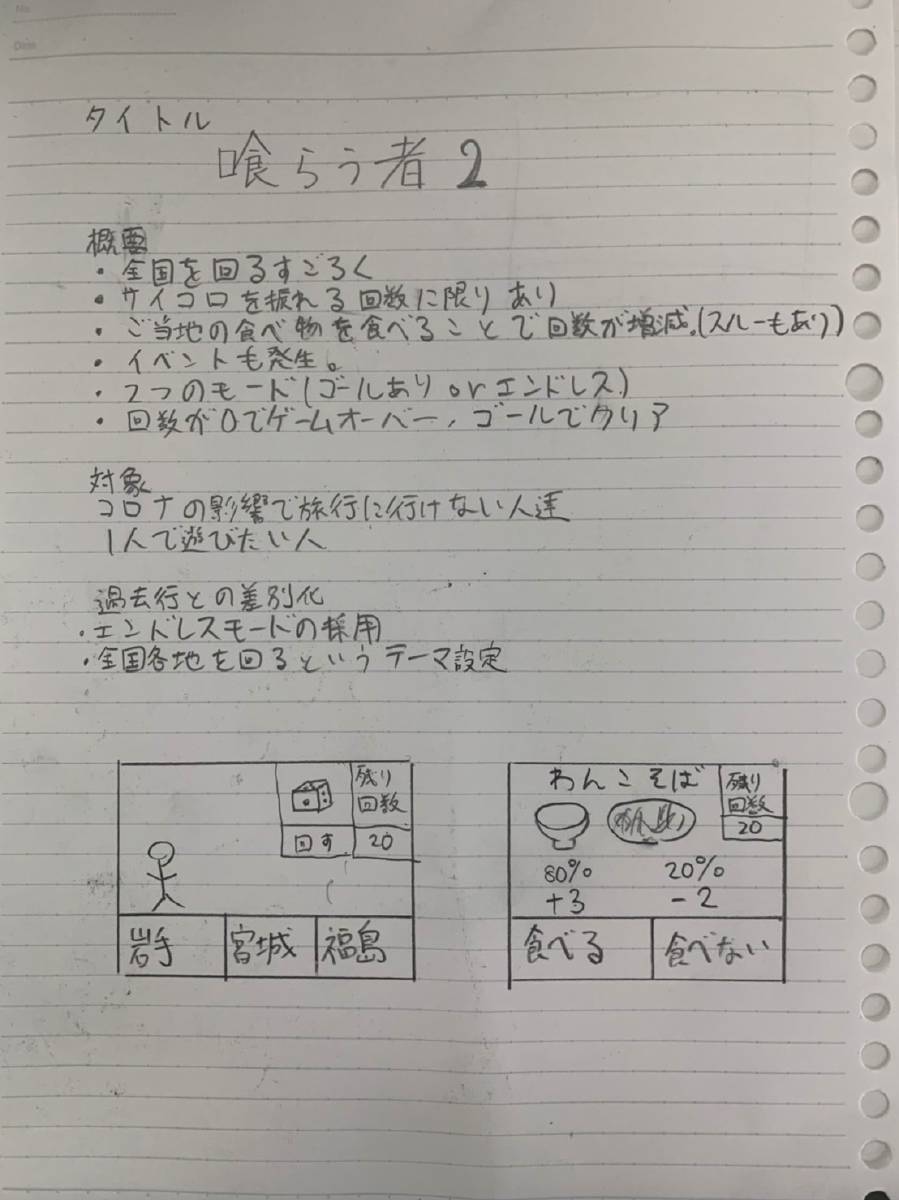 No.
Date
タイトル
喰らう者2
概要
・全国を回るすごろく
・サイコロを振れる回数に限りあり
・ご当地の食べ物を食べることで回数が増減。(スルーもあり)
・イベントも発生。
・2つのモード(ゴールあり or エンドレス)
・回数が0でゲームオーバー、ゴールでクリア
対象
コロナの影響で旅行に行けない人達
1人で遊びたい人
過去行との差別化
・エンドレスモードの採用
・全国各地を回るというテーマ設定
残り
回数
回す
20
岩手
宮城
福島
わんこそば
残り
回数
20
80%
20%
+3
-2
食べる
食べない